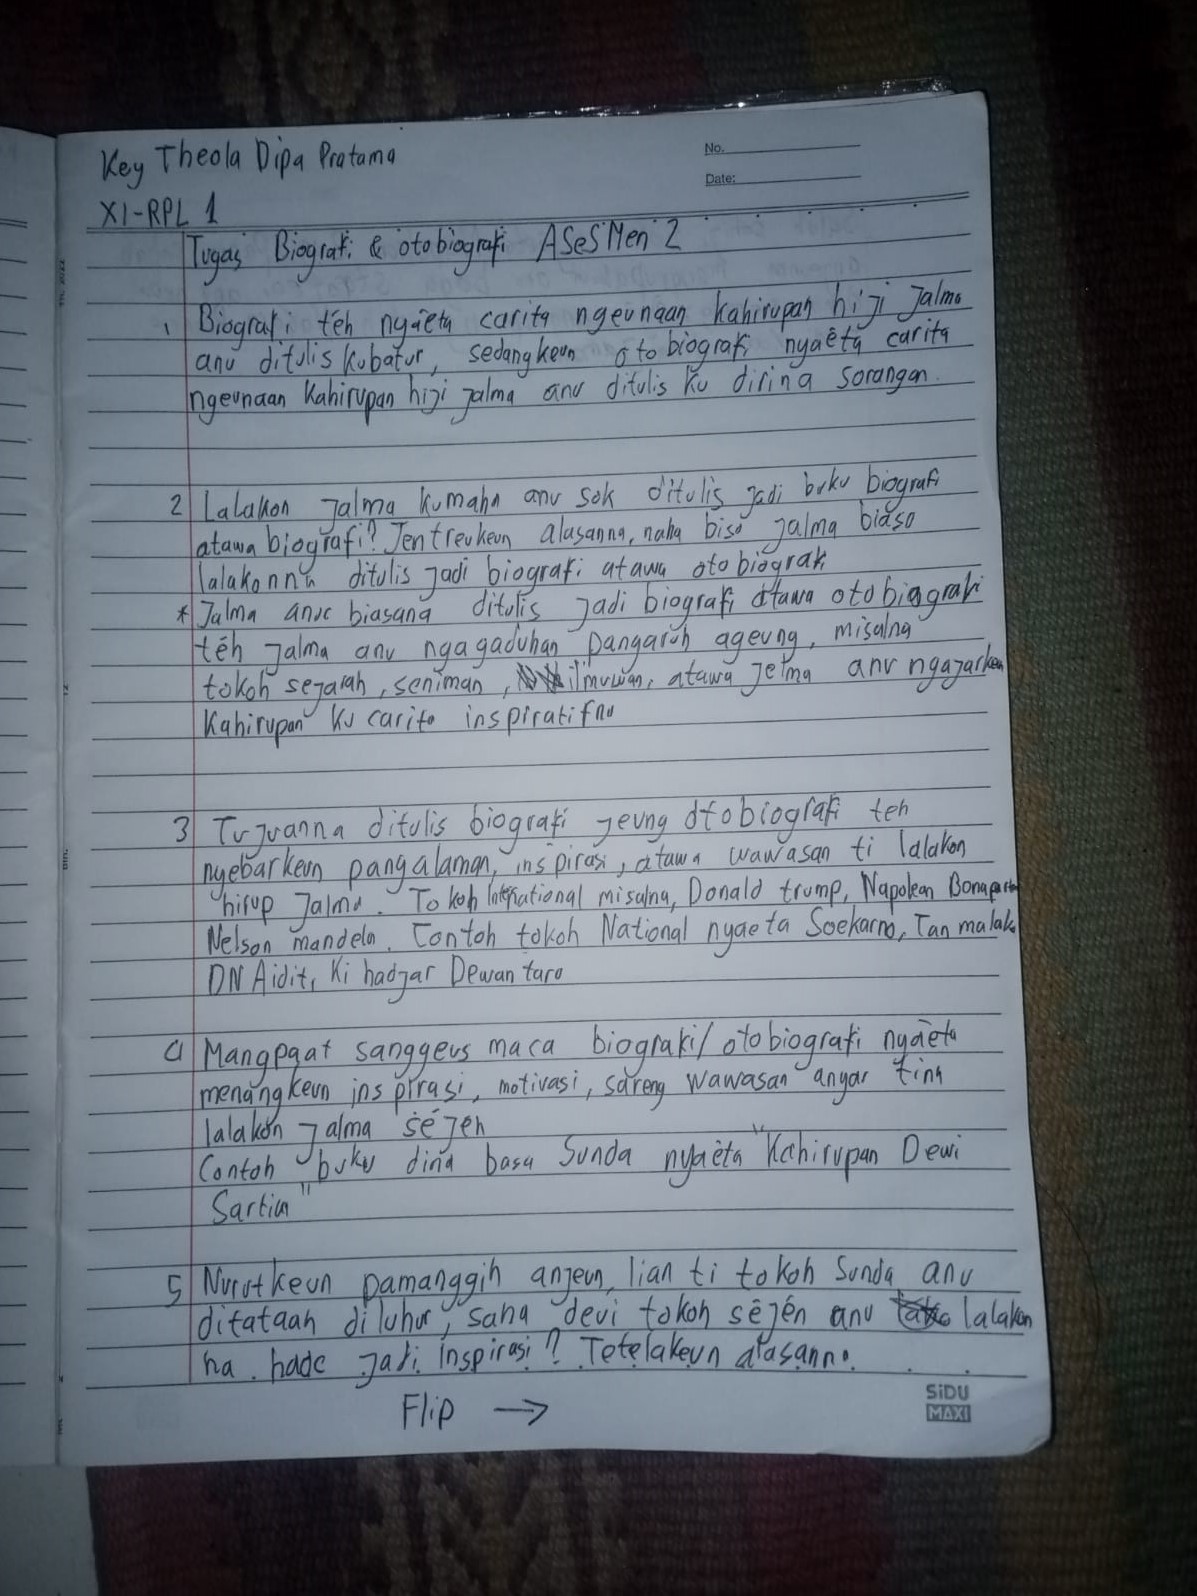 Key Theola Dipa Pratama
No.
Date:
XI-RPL 1
Tugas Biografi & otobiografi ASesMen 2
1 Biografi téh nyaéta carita ngeunaan kahirupan hiji Jalma
anu ditulis kubatur, sedangkeun otobiografi nyaéta carita
ngeunaan kahirupan hiji jalma anu ditulis ku dirina sorangan.
2 Lalakon jalma kumaha anu sok ditulis jadi buku biografi
atawa biografi? Jentreukeun alasanna, naha bisa jalma biasa
lalakonna ditulis jadi biografi atawa otobiografi
* Jalma anu biasana ditulis jadi biografi atawa otobiografi
téh jalma anu ngagaduhan pangaruh ageung, misalna
tokoh sejarah, seniman, ilmuwan, atawa jelma anu ngajarkeun
Kahirupan ku carita inspiratifna
3 Tujuanna ditulis biografi jeung otobiografi teh
nyebarkeun pangalaman, inspirasi, atawa wawasan ti lalakon
hirup jalma. Tokoh International misalna, Donald trump, Napolean Bonaparte
Nelson mandela. Contoh tokoh National nyaeta Soekarno, Tan malaka
DN Aidit, Ki hadjar Dewantara
4 Mangpaat sanggeus maca biografi/otobiografi nyaéta
menangkeun inspirasi, motivasi, sareng wawasan anyar tina
lalakon jalma séjén
Contoh buku dina basa Sunda nyaéta "Kahirupan Dewi
Sartika"
5 Nurutkeun pamanggih anjeun, lian ti tokoh Sunda anu
ditataan diluhur, saha deui tokoh séjén anu lalakon
na hade jadi inspirasi? Tetelakeun alasanna.
Flip →
SiDU
MAXI